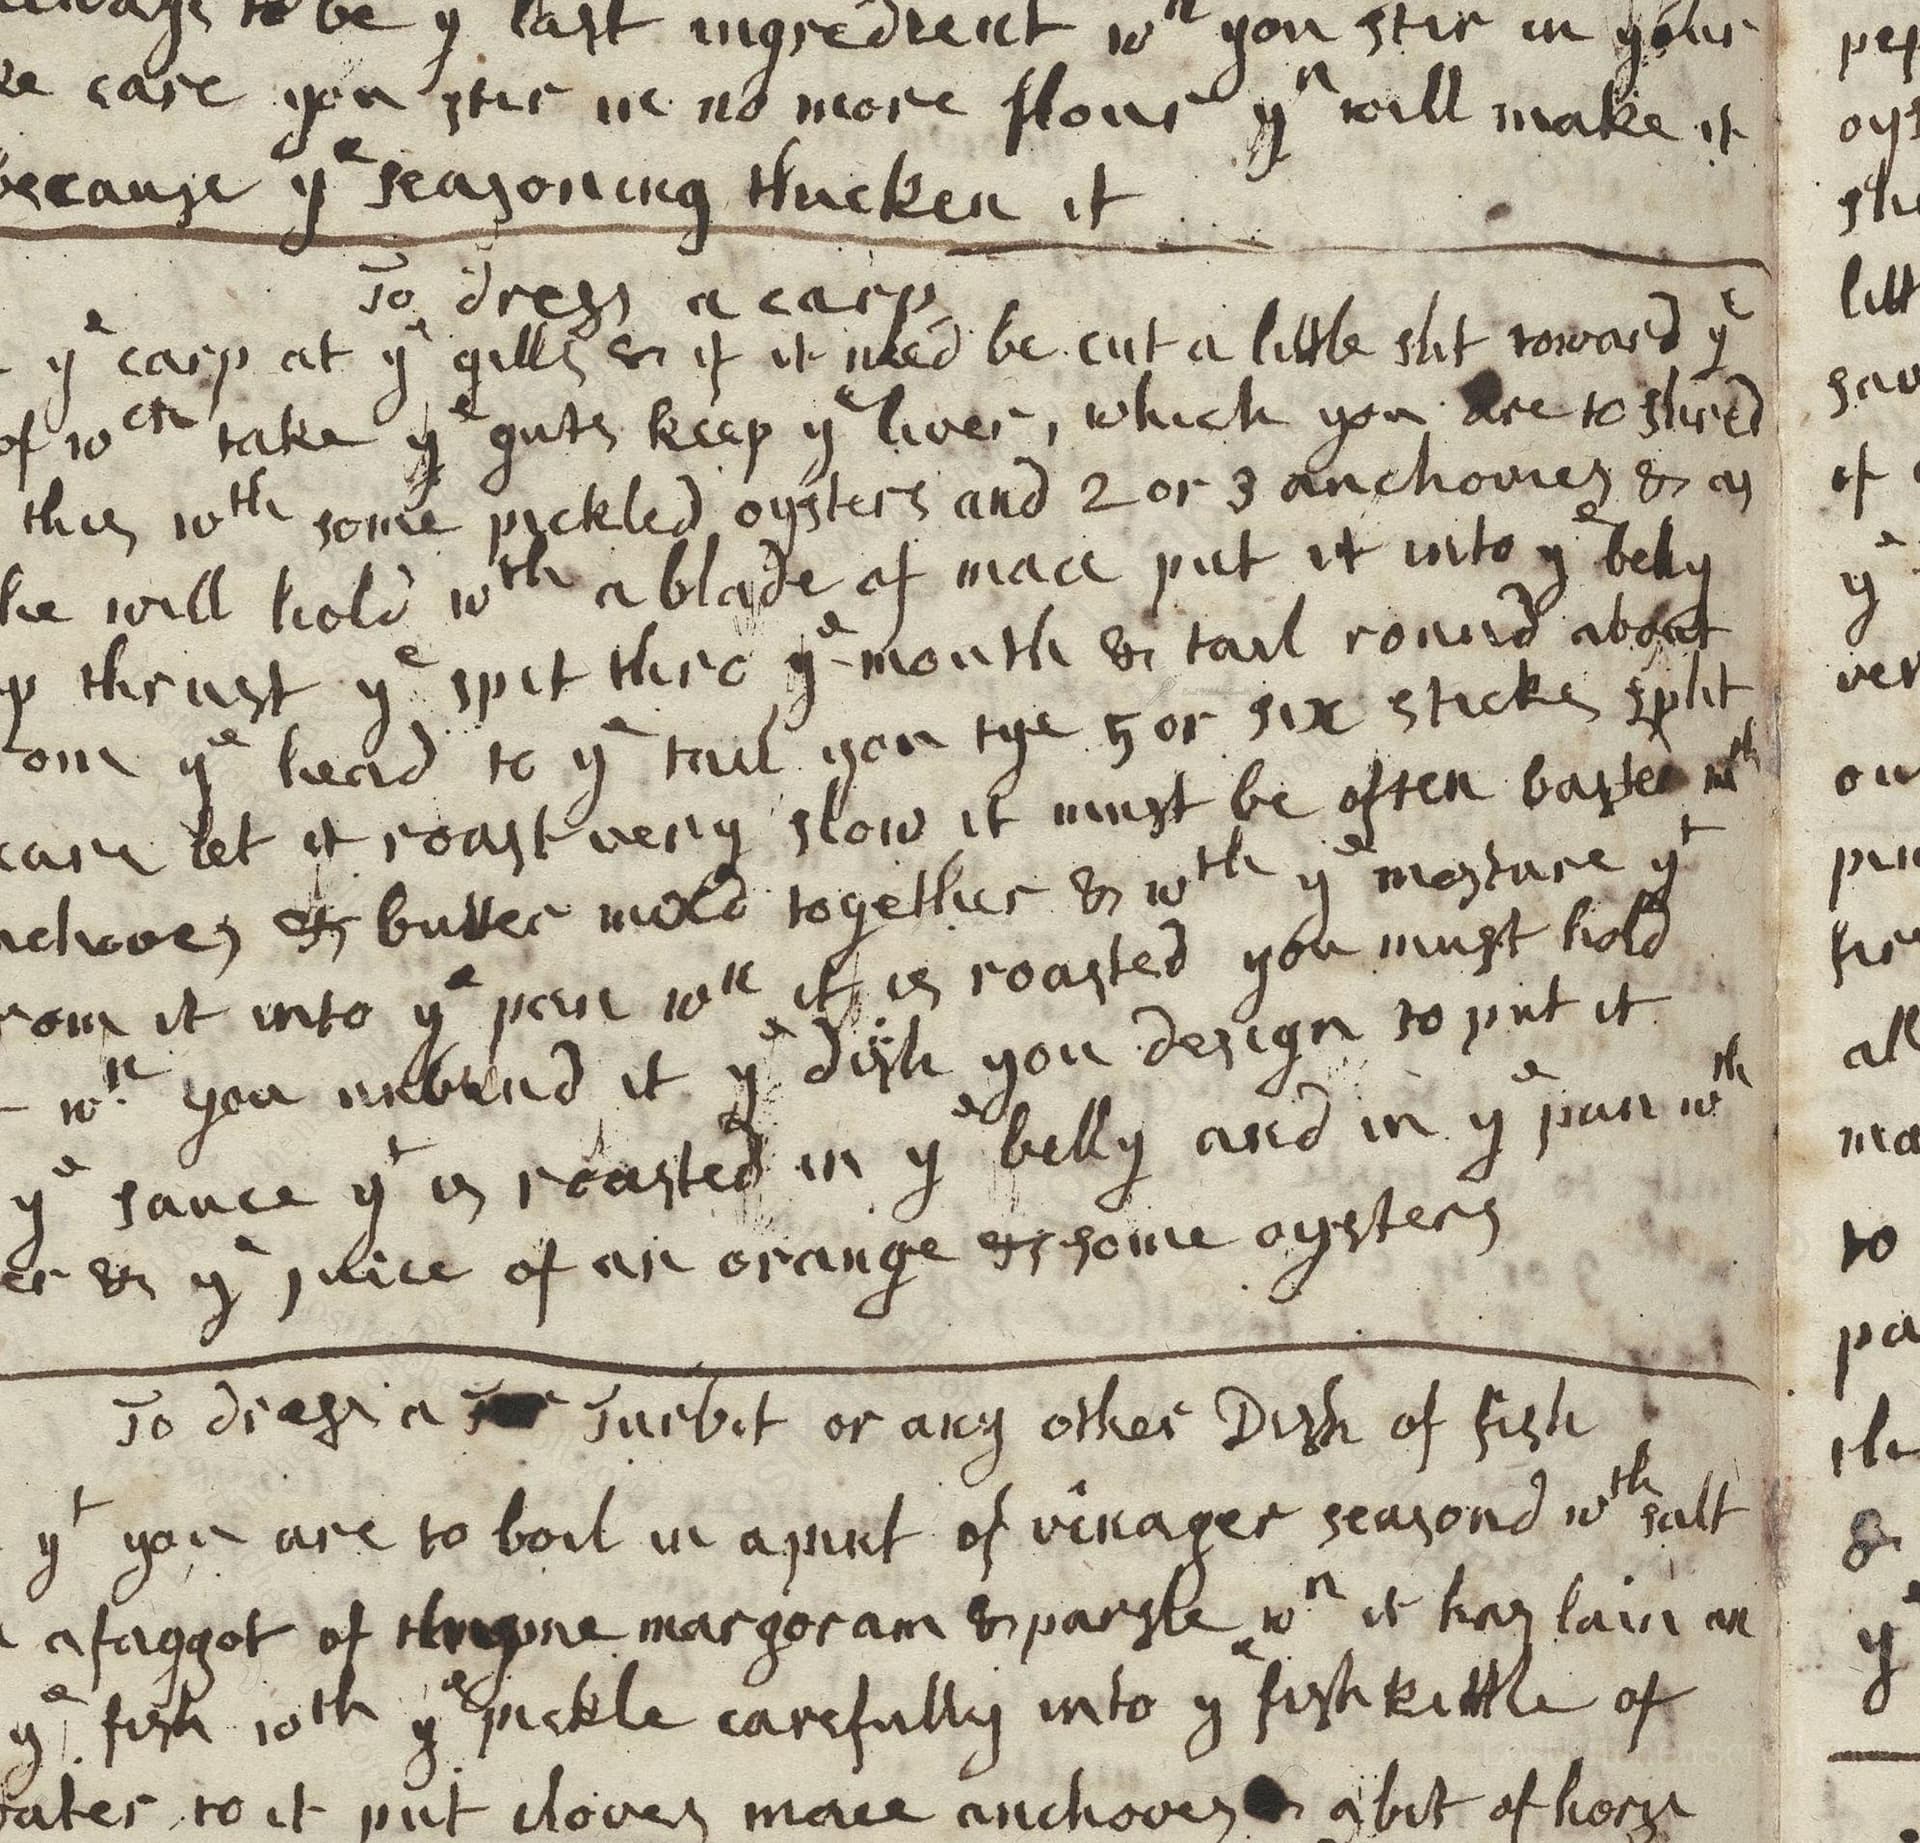 to be y last ingredient wn you stir in your
care you stir in no more flour yn will make it
because ye seasoning thicken it
To dress a carp
ye carp at ye gills & if it need be cut a little slit toward ye
of wch take ye guts keep ye liver, which you are to shred
this wth some pickled oysters and 2 or 3 anchovies & as
he will hold wth a blade of mace put it into ye belly
p thrust ye spit thro ye mouth & tail round about
om ye head to ye tail you tye 5 or six sticks split
care let it roast very slow it must be often basted wth
nchoves & butter mixd together & wth ye mosture yt
rom it into ye pan wn it is roasted you must hold
wn you unbind it ye dish you design to put it
ye sauce yt is roasted in ye belly and in ye pan wth
er & ye juice of an orange & some oysters
To dress a Turbit or any other Dish of fish
yt you are to boil in a pint of vinager seasond wth salt
a faggot of margoram & parsle wn it has lain an
ye fish wth ye pickle carefully into ye fish kittle of
water to it put cloves mace anchoves a bit of hors
pep
oys
she
litt
sau
of
ye
ver
ou
all
ma
to
pa
&
ye